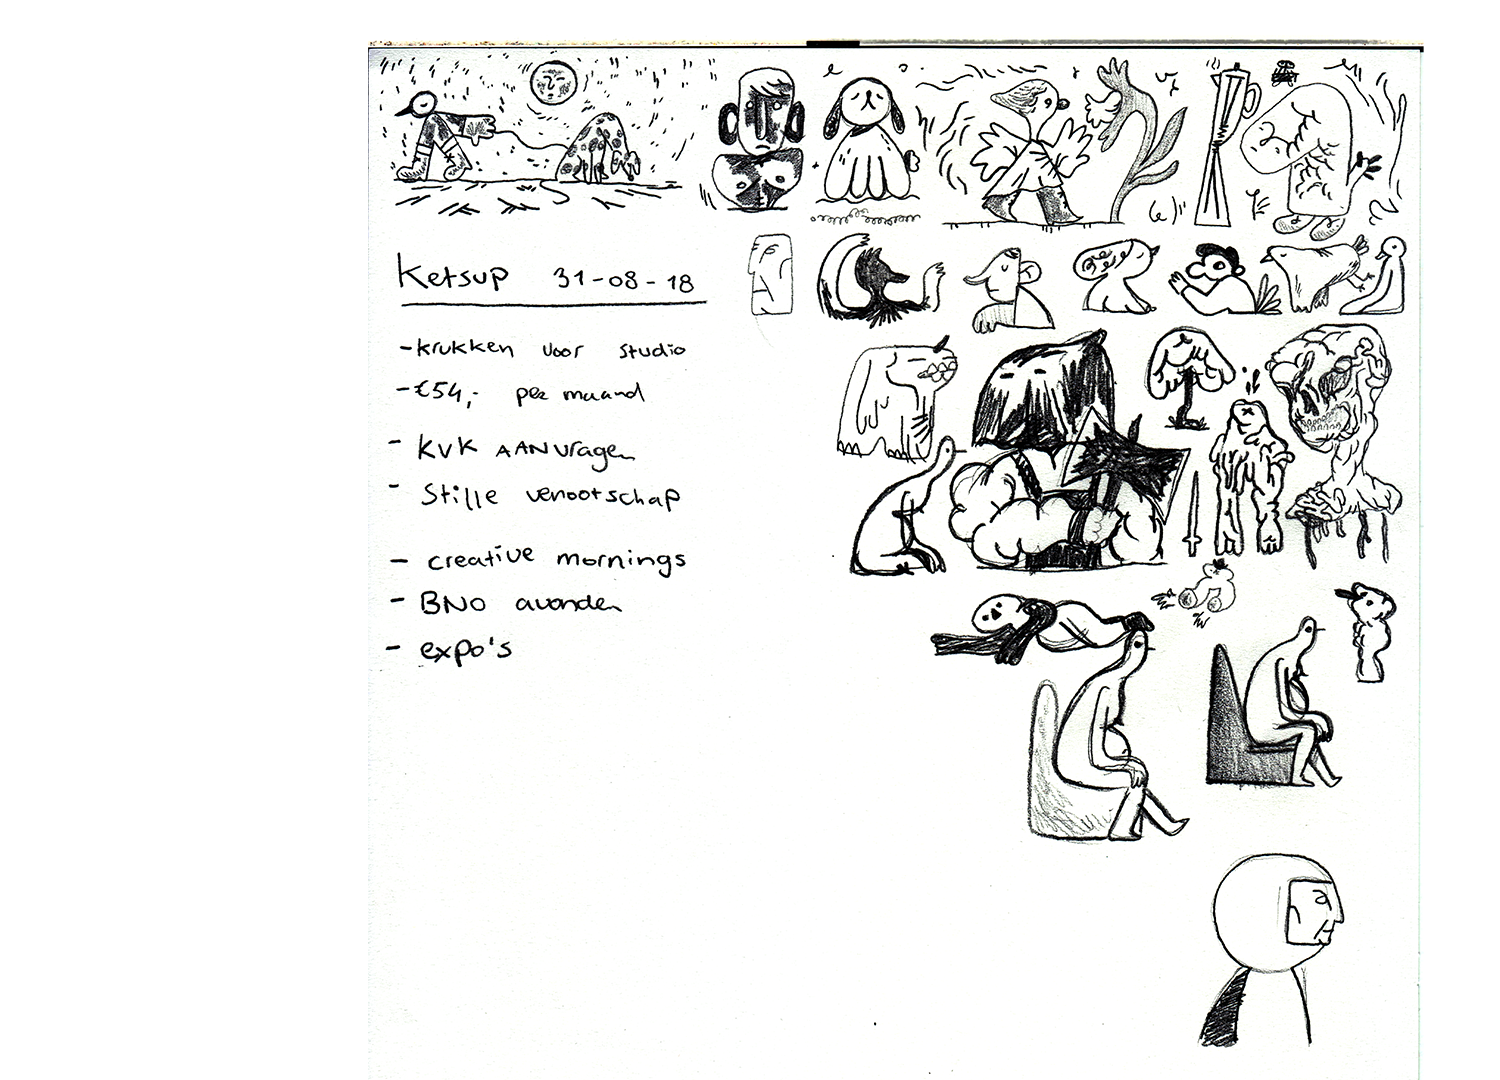 Ketsup 31-08-18
- krukken voor studio
- €54,- per maand
- KVK AANVragen
- Stille venootschap
- creative mornings
- BNO avonden
- expo's